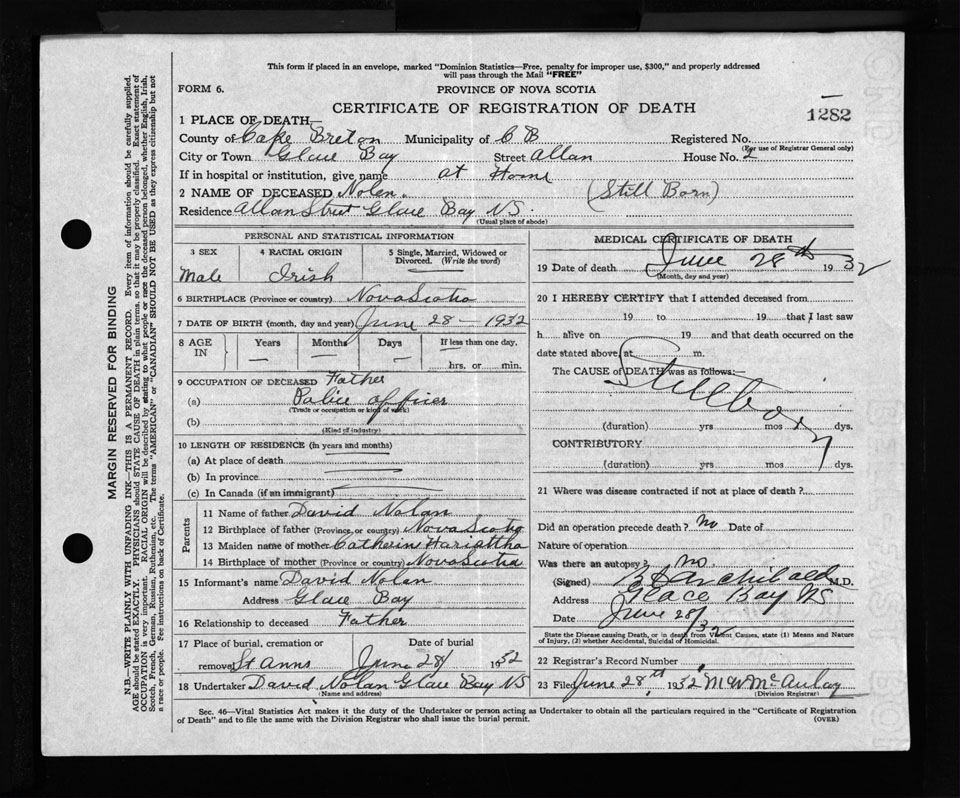 This form if placed in an envelope, marked "Dominion Statistics—Free, penalty for improper use, $300," and properly addressed
will pass through the Mail "FREE"
FORM 6.
PROVINCE OF NOVA SCOTIA
CERTIFICATE OF REGISTRATION OF DEATH
1282
1 PLACE OF DEATH—
County of Cape Breton Municipality of C B Registered No.
(For use of Registrar General only)
City or Town Glace Bay Street Allan House No. 2
If in hospital or institution, give name at Home
2 NAME OF DECEASED Nolan (Still Born)
Residence Allan Street Glace Bay NS.
(Usual place of abode)
PERSONAL AND STATISTICAL INFORMATION
3 SEX 4 RACIAL ORIGIN 5 Single, Married, Widowed or
Divorced. (Write the word)
Male Irish
6 BIRTHPLACE (Province or country) Nova Scotia
7 DATE OF BIRTH (month, day and year) June 28 — 1932
8 AGE IN Years Months Days If less than one day.
hrs. or min.
9 OCCUPATION OF DECEASED Father
(a) Police officer
(Trade or occupation or kind of work)
(b)
(Kind of industry)
10 LENGTH OF RESIDENCE (in years and months)
(a) At place of death
(b) In province
(c) In Canada (if an immigrant)
Parents
11 Name of father David Nolan
12 Birthplace of father (Province, or country) Nova Scotia
13 Maiden name of mother Catherine
14 Birthplace of mother (Province or country) Nova Scotia
15 Informant's name David Nolan
Address Glace Bay
16 Relationship to deceased Father
17 Place of burial, cremation or Date of burial
removal St Anns June 28 1932
18 Undertaker David Nolan Glace Bay NS
(Name and address)
MEDICAL CERTIFICATE OF DEATH
19 Date of death June 28th 1932
(Month, day and year)
20 I HEREBY CERTIFY that I attended deceased from
19 to 19 that I last saw
h alive on 19 and that death occurred on the
date stated above, at m.
The CAUSE of DEATH was as follows:—
Stillborn
(duration) yrs mos dys.
CONTRIBUTORY
(duration) yrs mos dys.
21 Where was disease contracted if not at place of death?
Did an operation precede death? No Date of
Nature of operation
Was there an autopsy? no
(Signed) Archibald M.D.
Address Glace Bay NS
Date June 28/32
State the Disease causing Death, or in death from Violent Causes, state (1) Means and Nature
of Injury, (2) whether Accidental, Suicidal or Homicidal.
22 Registrar's Record Number
23 Filed June 28th 1932 M W McAulay
(Division Registrar)
Sec. 46—Vital Statistics Act makes it the duty of the Undertaker or person acting as Undertaker to obtain all the particulars required in the "Certificate of Registration
of Death" and to file the same with the Division Registrar who shall issue the burial permit.
(OVER)
MARGIN RESERVED FOR BINDING
N.B.—WRITE PLAINLY WITH UNFADING INK—THIS IS A PERMANENT RECORD. Every item of information should be carefully supplied.
AGE should be stated EXACTLY. PHYSICIANS should STATE CAUSE OF DEATH in plain terms, so that it may be properly classified. Exact statement of
OCCUPATION is very important. RACIAL ORIGIN will be described by stating to what people or race the deceased person belonged, whether English, Irish,
Scotch, French, German, Russian, Ruthenian, etc. The terms "AMERICAN" or "CANADIAN" SHOULD NOT BE USED as they express citizenship but not
a race or people. See instructions on back of Certificate.